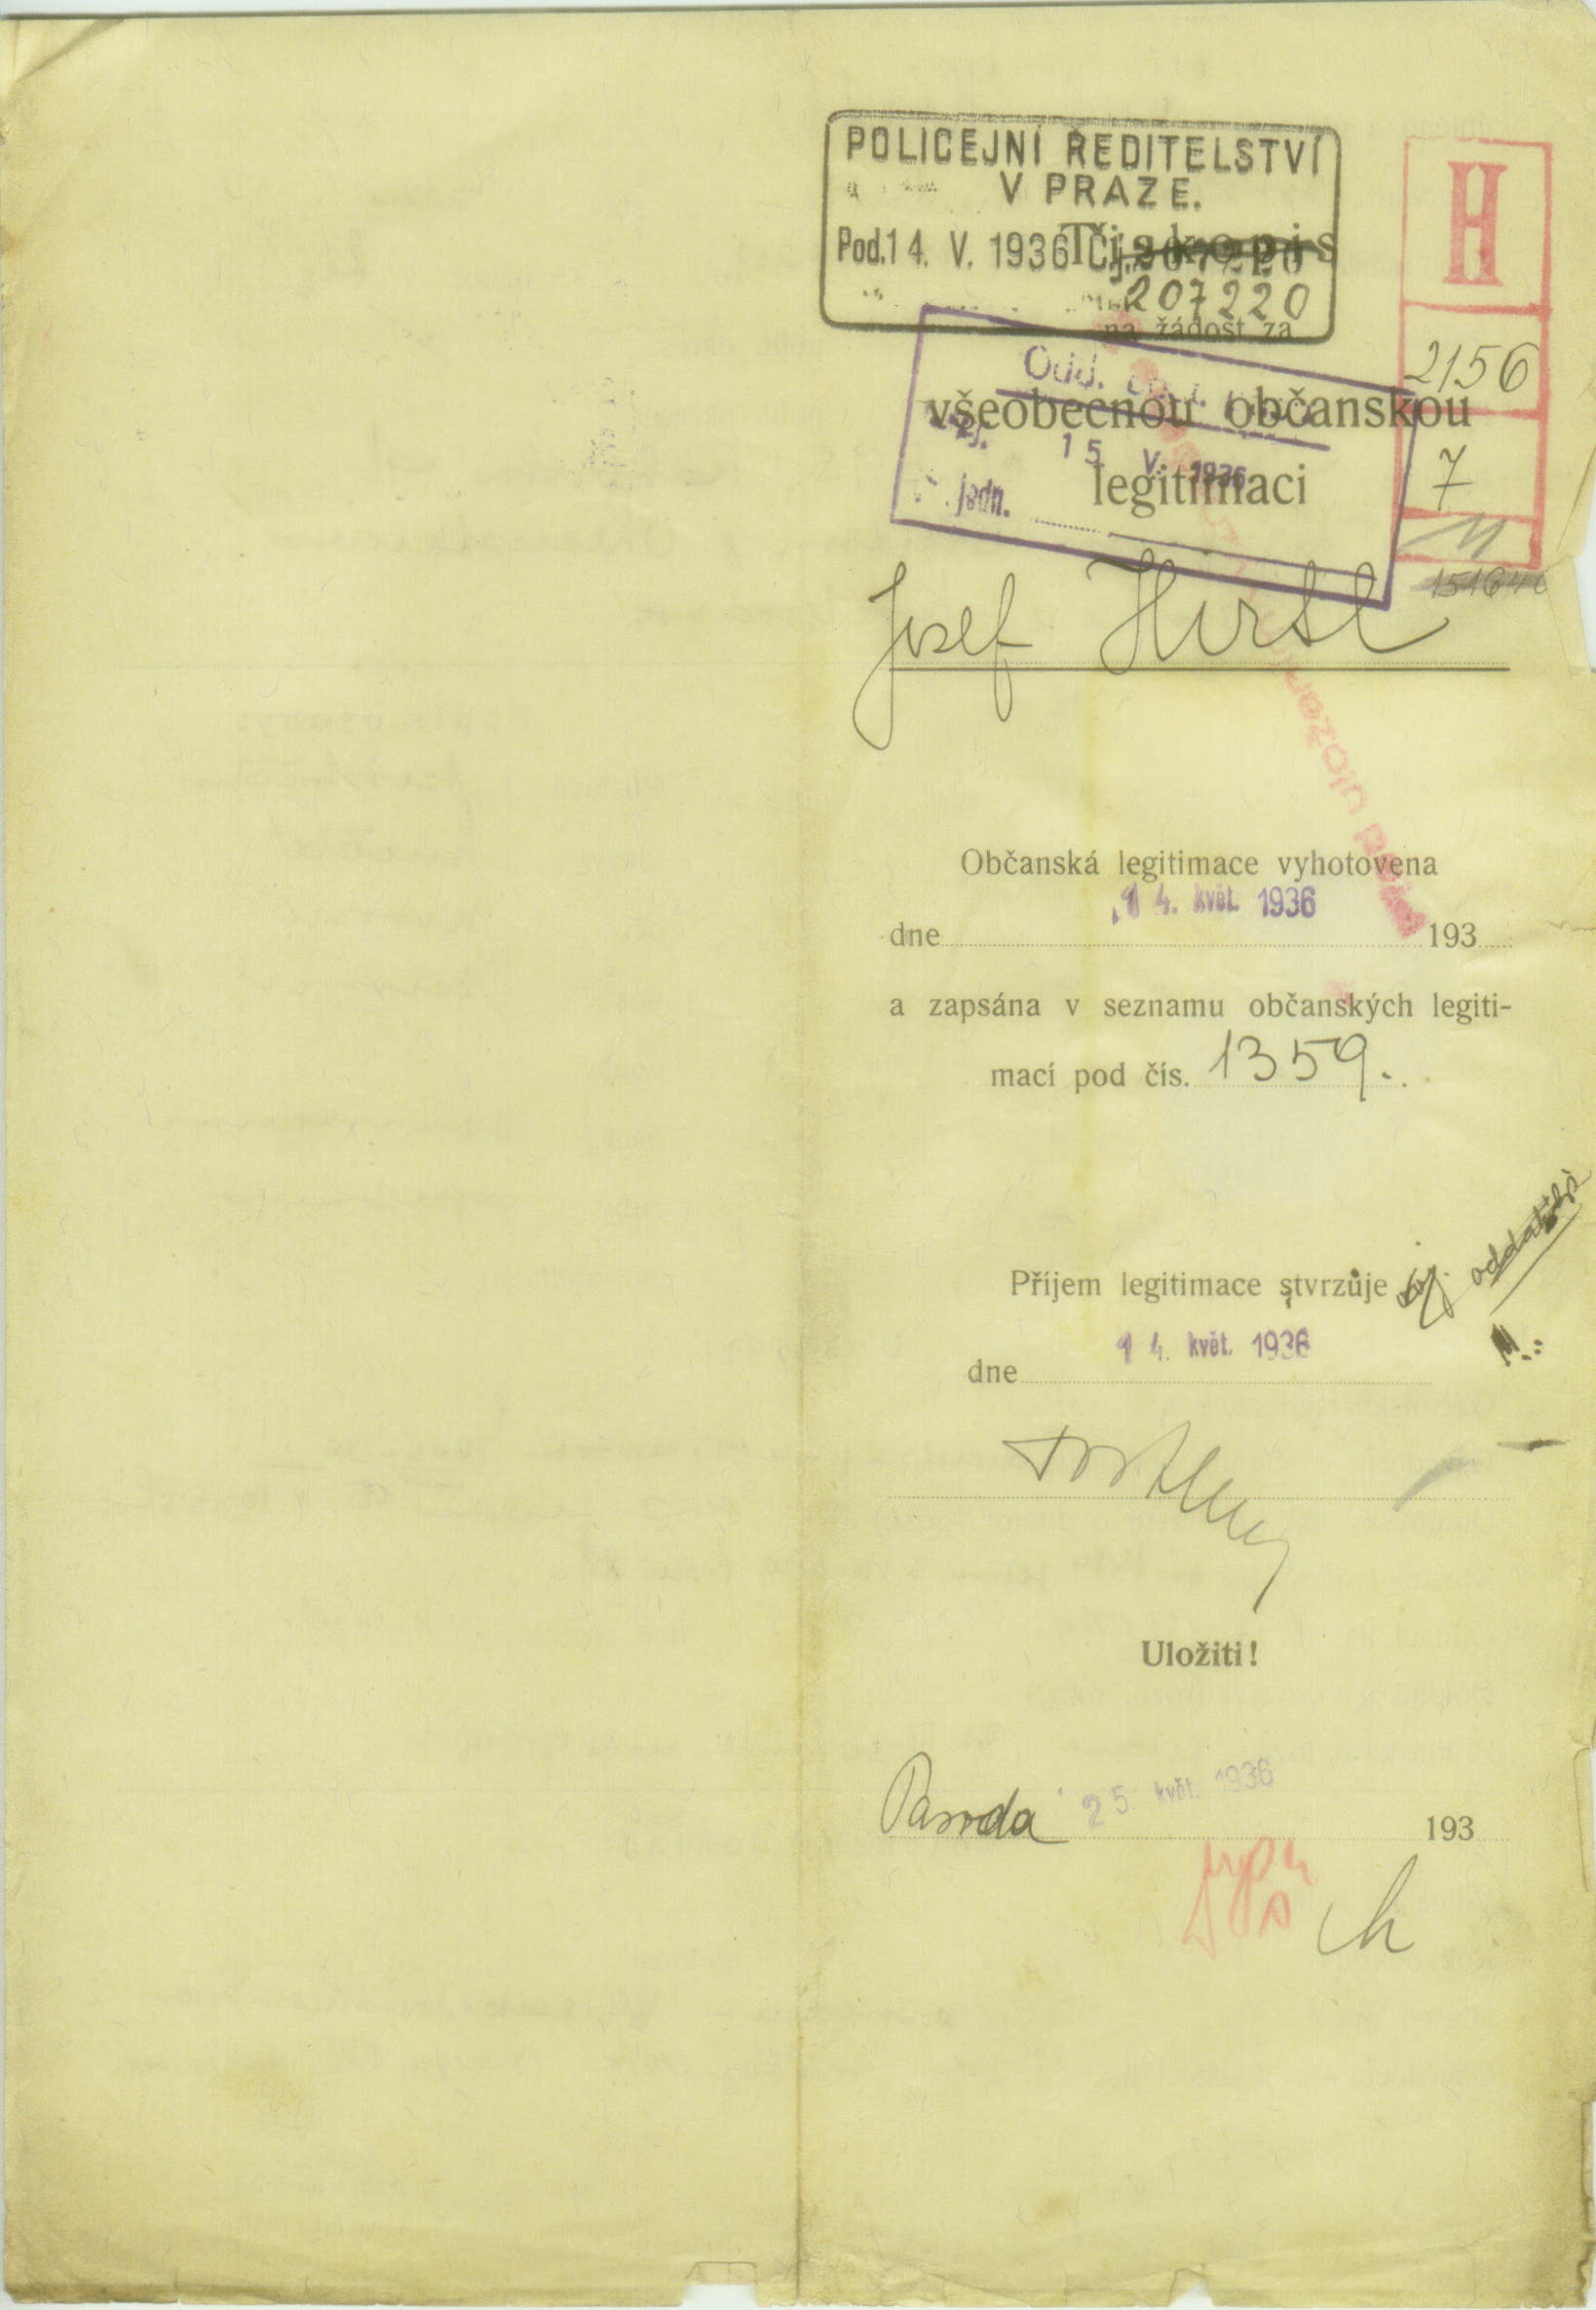 POLICEJNÍ ŘEDITELSTVÍ
V PRAZE.
Pod. 14. V. 1936 Čj. 207220
Tiskopis
207220
na žádost za
H
2156
7
Odd.
všeobecnou občanskou
15 V. 1936
jedn.
legitimaci
Josef Hirsl
Občanská legitimace vyhotovena
14. květ. 1936
dne 193
a zapsána v seznamu občanských legiti-
mací pod čís. 1359.
Příjem legitimace stvrzuje
14. květ. 1936
dne
Uložiti!
25. květ. 1936
193